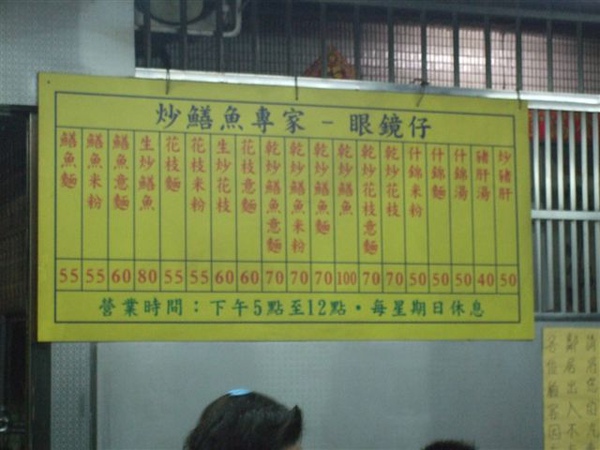 炒鱔魚專家－眼鏡仔
鱔魚麵 55
鱔魚米粉 55
鱔魚意麵 60
生炒鱔魚 80
花枝麵 55
花枝米粉 55
生炒花枝 60
花枝意麵 60
乾炒鱔魚意麵 70
乾炒鱔魚米粉 70
乾炒鱔魚麵 70
乾炒鱔魚 100
乾炒花枝意麵 70
乾炒花枝 70
什錦米粉 50
什錦麵 50
什錦湯 50
豬肝湯 40
炒豬肝 50
營業時間：下午5點至12點・每星期日休息